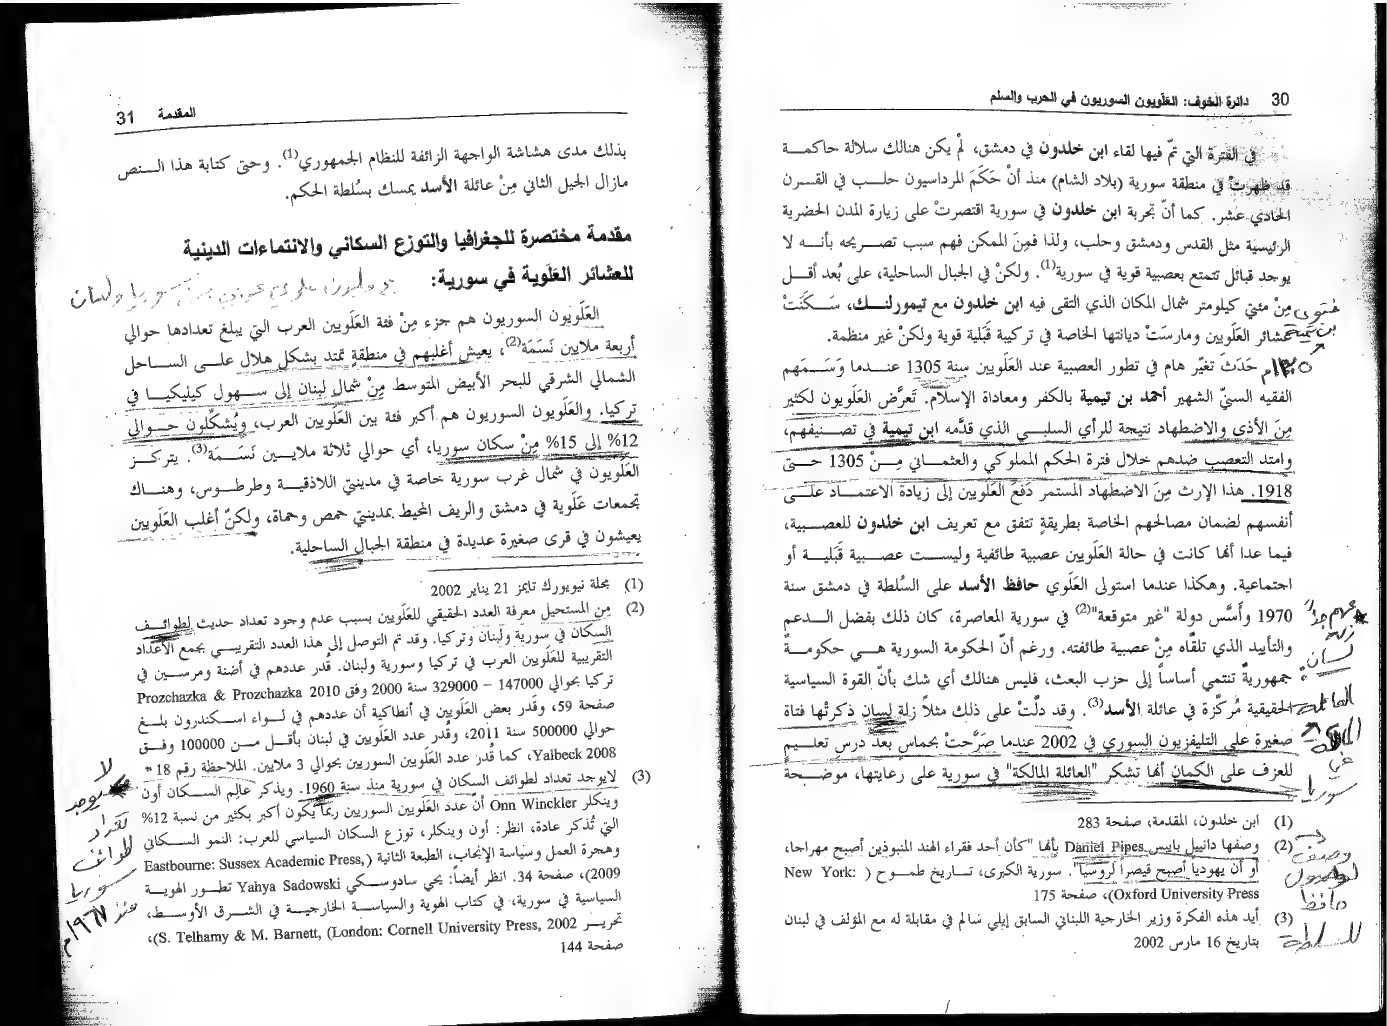 30 دائرة الخوف: العَلَويون السوريون في الحرب والسلم
في الفترة التي تمّ فيها لقاء ابن خلدون في دمشق، لمْ يكن هنالك سلالة حاكمـــة
قد ظهرتْ في منطقة سورية (بلاد الشام) منذ أنْ حَكَمَ المرداسيون حلب في القـرن
الحادي عشر. كما أنّ تجربة ابن خلدون في سورية اقتصرتْ على زيارة المدن الحضرية
الرئيسية مثل القدس ودمشق وحلب، ولذا فمِنَ الممكن فهم سبب تصـريحه بأنـه لا
يوجد قبائل تتمتع بعصبية قوية في سورية(1). ولكنْ في الجبال الساحلية، على بُعد أقـل
مِنْ مئتي كيلومتر شمال المكان الذي التقى فيه ابن خلدون مع تيمورلنـك، سَـكَنَتْ
عشائر العَلَويين ومارسَتْ ديانتها الخاصة في تركيبة قَبَلية قوية ولكنْ غير منظمة.
حَدَثَ تغيّر هام في تطور العصبية عند العَلَويين سنة 1305 عنـدما وَسَـمَهم
الفقيه السنيّ الشهير أحمد بن تيمية بالكفر ومعاداة الإسلام. تَعرَّض العَلَويون لكثير
مِنَ الأذى والاضطهاد نتيجة للرأي السلبـي الذي قدَّمه ابن تيمية في تصـنيفهم،
وامتد التعصب ضدهم خلال فترة الحكم المملوكي والعثمـاني مِـنْ 1305 حـتى
1918. هذا الإرث مِنَ الاضطهاد المستمر دَفعَ العَلَويين إلى زيادة الاعتمـاد علـى
أنفسهم لضمان مصالحهم الخاصة بطريقةٍ تتفق مع تعريف ابن خلدون للعصبية،
فيما عدا أنها كانت في حالة العَلَويين عصبية طائفية وليسـت عصـبية قَبَلية أو
اجتماعية. وهكذا عندما استولى العَلَوي حافظ الأسد على السُلطة في دمشق سنة
1970 وأَسَّس دولة "غير متوقعة"(2) في سورية المعاصرة، كان ذلك بفضل الـدعم
والتأييد الذي تلقّاه مِنْ عصبية طائفته. ورغم أنّ الحكومة السورية هـي حكومـة
جمهوريةٌ تنتمي أساساً إلى حزب البعث، فليس هنالك أي شك بأنّ القوة السياسية
الحقيقية مُركّزة في عائلة الأسد(3). وقد دلّتْ على ذلك مثلاً زلة لسان ذكرتْها فتاة
صغيرة على التليفزيون السوري في 2002 عندما صَرَّحتْ بحماس بعد درس تعلـيم
للعزف على الكمان أنها تشكر "العائلة المالكة" في سورية على رعايتها، موضـحةً
(1) ابن خلدون، المقدمة، صفحة 283
(2) وصفها دانييل بايبس Daniel Pipes بأنها "كأن أحد فقراء الهند المنبوذين أصبح مهراجا،
أو أن يهودياً أصبح قيصراً لروسيا". سورية الكبرى، تـاريخ طمـوح (New York:
Oxford University Press)، صفحة 175
(3) أيد هذه الفكرة وزير الخارجية اللبناني السابق إيلي سالم في مقابلة له مع المؤلف في لبنان
بتاريخ 16 مارس 2002
فتوى
بن تيمية
١٣٠٥م
مهم جداً
زلة
لسان:
العائلة
المالكة
في
سوريا
وصف
لوصول
حافظ
للسلطة
المقدمة 31
بذلك مدى هشاشة الواجهة الزائفة للنظام الجمهوري(1). وحتى كتابة هذا الـــنص
مازال الجيل الثاني مِنْ عائلة الأسد يمسك بسُلطة الحكم.
مقدمة مختصرة للجغرافيا والتوزع السكاني والانتماءات الدينية
للعشائر العَلَوية في سورية:
العَلَويّون السوريون هم جزء مِنْ فئة العَلَويين العرب التي يبلغ تعدادها حوالي
أربعة ملايين نَسَمَة(2)، يعيش أغلبهم في منطقةٍ تمتد بشكل هلال علـى السـاحل
الشمالي الشرقي للبحر الأبيض المتوسط مِنْ شمال لبنان إلى سـهول كيليكيـا في
تركيا. والعَلَويون السوريون هم أكبر فئة بين العَلَويين العرب، ويُشكّلون حـوالي
12% إلى 15% مِنْ سكان سوريا، أي حوالي ثلاثة ملايـين نَسَـمَة(3). يتركـز
العَلَويون في شمال غرب سورية خاصة في مدينتي اللاذقيـة وطرطـوس، وهنـاك
تجمعات عَلَوية في دمشق والريف المحيط بمدينتي حمص وحماة، ولكنّ أغلب العَلَويين
يعيشون في قرى صغيرة عديدة في منطقة الجبال الساحلية.
(1) مجلة نيويورك تايمز 21 يناير 2002
(2) مِن المستحيل معرفة العدد الحقيقي للعَلَويين بسبب عدم وجود تعداد حديث لطوائـف
السكان في سورية ولبنان وتركيا. وقد تم التوصل إلى هذا العدد التقريبـي بجمع الأعداد
التقريبية للعَلَويين العرب في تركيا وسورية ولبنان. قُدر عددهم في أضنة ومرسـين في
تركيا بحوالي 147000 – 329000 سنة 2000 وفق Prozchazka & Prozchazka 2010
صفحة 59، وقَدر بعض العَلَويين في أنطاكية أن عددهم في لـواء اسـكندرون بلـغ
حوالي 500000 سنة 2011، وقُدر عدد العَلَويين في لبنان بأقـل مـن 100000 وفـق
Yaibeck 2008، كما قُدر عدد العَلَويين السوريين بحوالي 3 ملايين. الملاحظة رقم 18
(3) لايوجد تعداد لطوائف السكان في سورية منذ سنة 1960. ويذكر عالِم السـكان أون
وينكلر Onn Winckler أنّ عدد العَلَويين السوريين ربما يكون أكبر بكثير من نسبة 12%
التي تُذكر عادة، انظر: أون وينكلر، توزع السكان السياسي للعرب: النمو السـكاني
وهجرة العمل وسياسة الإنجاب، الطبعة الثانية (Eastbourne: Sussex Academic Press,
2009)، صفحة 34. انظر أيضاً: يحي سادوسـكي Yahya Sadowski تطـور الهويـة
السياسية في سورية، في كتاب الهوية والسياسة الخارجيـة في الشـرق الأوسـط،
تحريـر S. Telhamy & M. Barnett, (London: Cornell University Press, 2002)،
صفحة 144
لا
يوجد
تعداد
لطوائف
سوريا
منذ ١٩٦٧م